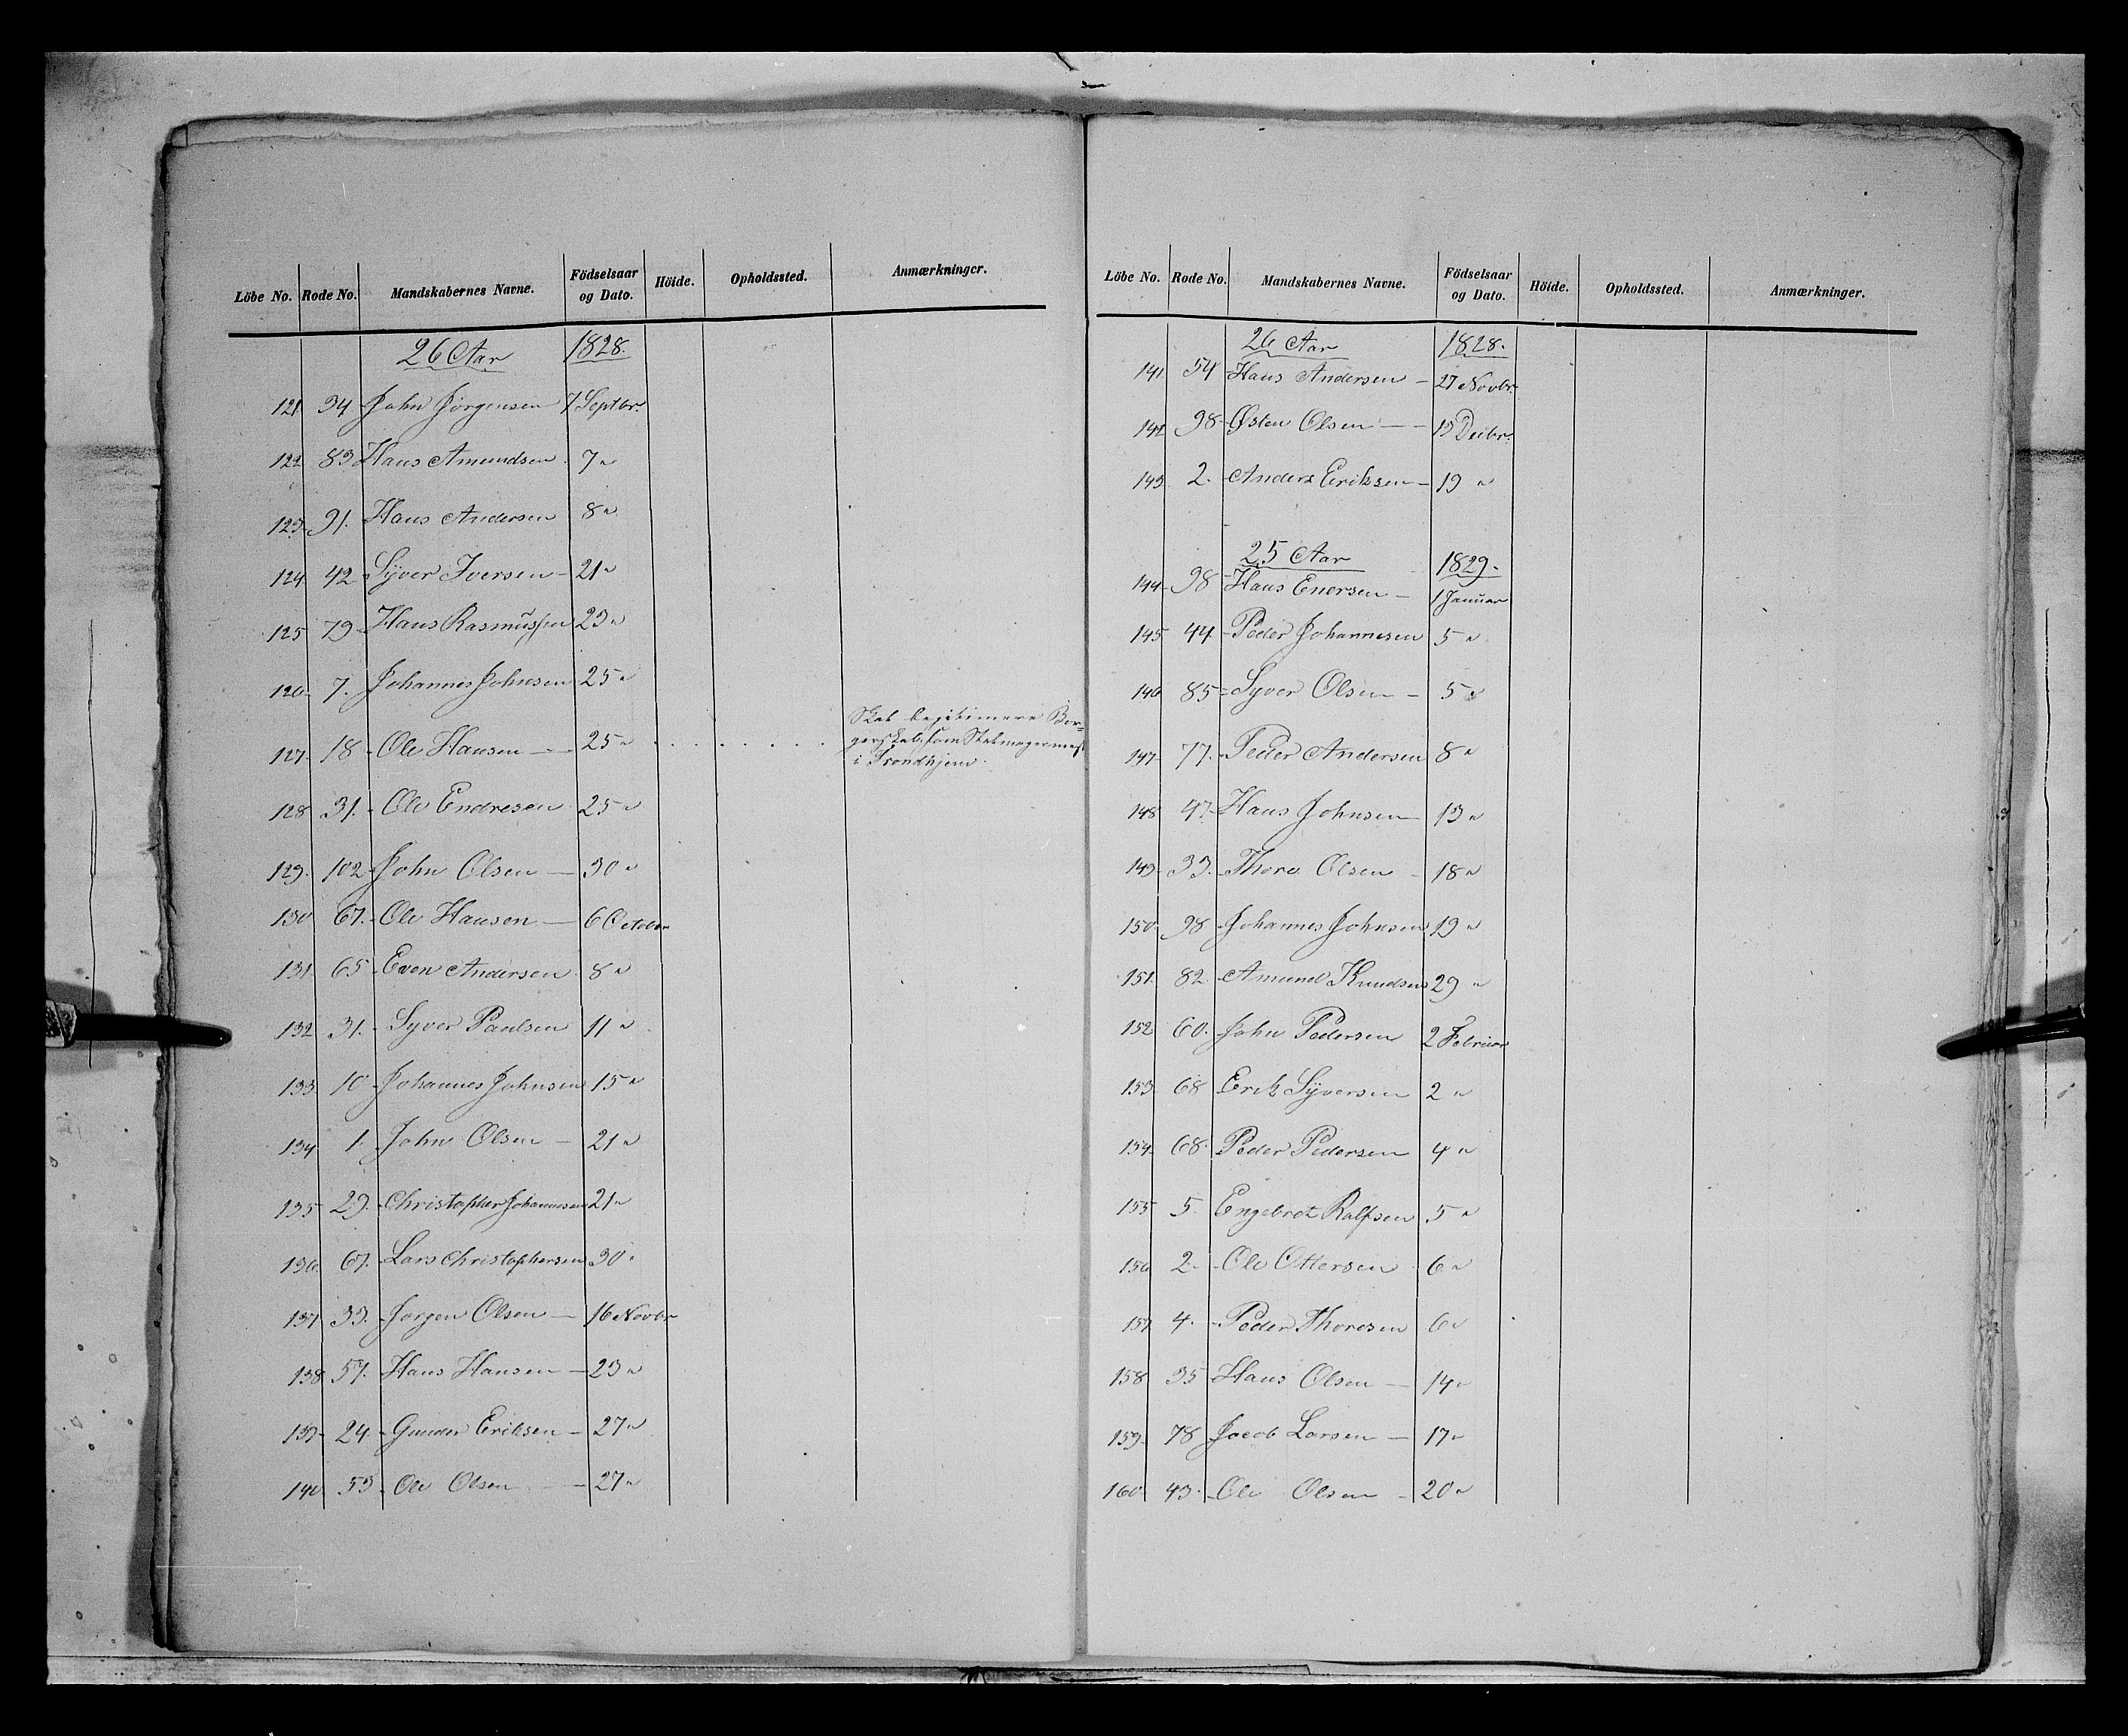 Löbe No. Rode No. Mandskabernes Navne. Födselsaar og Dato. Höide. Opholdssted. Anmærkninger.
26 Aar 1828.
121 34 John Jörgensen 7 Septbr.
122 83 Hans Amundsen 7 "
123 91. Hans Andersen 8 "
124 42 Syver Iversen - 21 "
125 79 Hans Rasmussen 23 "
126 7. Johannes Johnsen 25 "
127 18 Ole Hansen - 25 " Skal legitimere Bor-
gerskab som Stolmagermest
i Trondhjem.
128 31. Ole Endresen 25 "
129. 102 John Olsen - 30 "
130 67. Ole Hansen - 6 October
131 65 Even Andersen 8 "
132 31. Syver Paulsen 11 "
133 10 Johannes Johnsen 15 "
134 1. John Olsen - 21 "
135 29. Christopher Johannesen 21 "
136 67. Lars Christophersen 30 "
137 33. Jörgen Olsen - 16 Novbr
138 57. Hans Hansen - 23 "
139 24 Gunder Eriksen - 27 "
140 53 Ole Olsen - 27 "
Löbe No. Rode No. Mandskabernes Navne. Födselsaar og Dato. Höide. Opholdssted. Anmærkninger.
26 Aar 1828.
141 54 Hans Andersen - 27 Novbr.
142 98 Østen Olsen - 15 Decbr.
143 2. Anders Eriksen - 19 "
25 Aar 1829.
144 98 Hans Enersen - 1 Januar
145 44 Peder Johannesen 5 "
146 85 Syver Olsen - 5 "
147 77. Peder Andersen 8 "
148 47 Hans Johnsen - 13 "
149 33. Thore Olsen - 18 "
150 98 Johannes Johnsen 19 "
151. 82 Amund Knudsen 29 "
152 60. John Pedersen 2 Februar
153 68 Erik Syversen 2 "
154 68. Peder Pedersen 4 "
155 5. Engebret Ralfsen 5 "
156 2. Ole Ottersen 6 "
157 4. Peder Thoresen 6 "
158 35 Hans Olsen - 14 "
159 78 Jacob Larsen - 17 "
160 43. Ole Olsen - 20 "